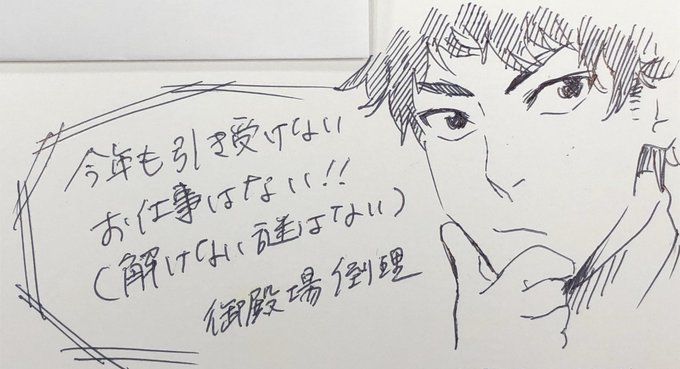 今年も引き受けない
お仕事はない!!
(解けない謎はない)
御殿場倒理